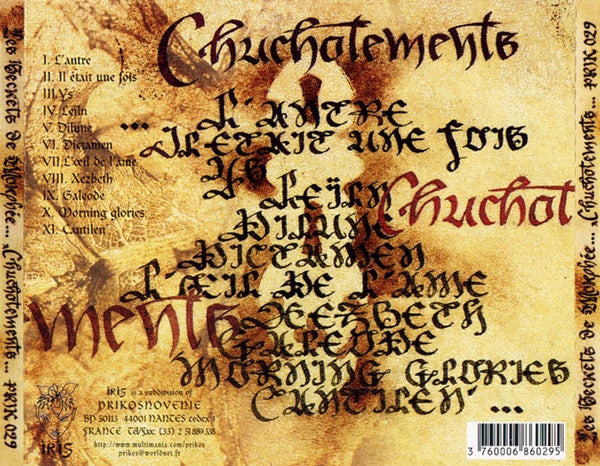 Les Secrets de Morphée... Chuchotements... PRIK 029
Chuchotements
I. L'antre
II. Il était une fois
III.Ys
IV. Leïln
V. Dilune
VI. Dictamen
VII.L'œil de l'âme
VIII. Xezbeth
IX. Galeode
X. Morning glories
XI. Cantilen'
... L'ANTRE
IL ETAIT UNE FOIS
YS
LEÏLN
DILUNE
DICTAMEN
L'ŒIL DE L'AME
XEZBETH
GALEODE
MORNING GLORIES
CANTILEN' ...
Chuchot
ments
IRIS
IRIS is a subdivision of
PRIKOSNOVENIE
BP 50113 44001 NANTES cedex 1
FRANCE Tél/Fax: (33) 2 51 889 338
http://www.multimania.com/prikos
prikos@worldnet.fr
3 760006 860295
Les Secrets de Morphée... Chuchotements... PRIK 029